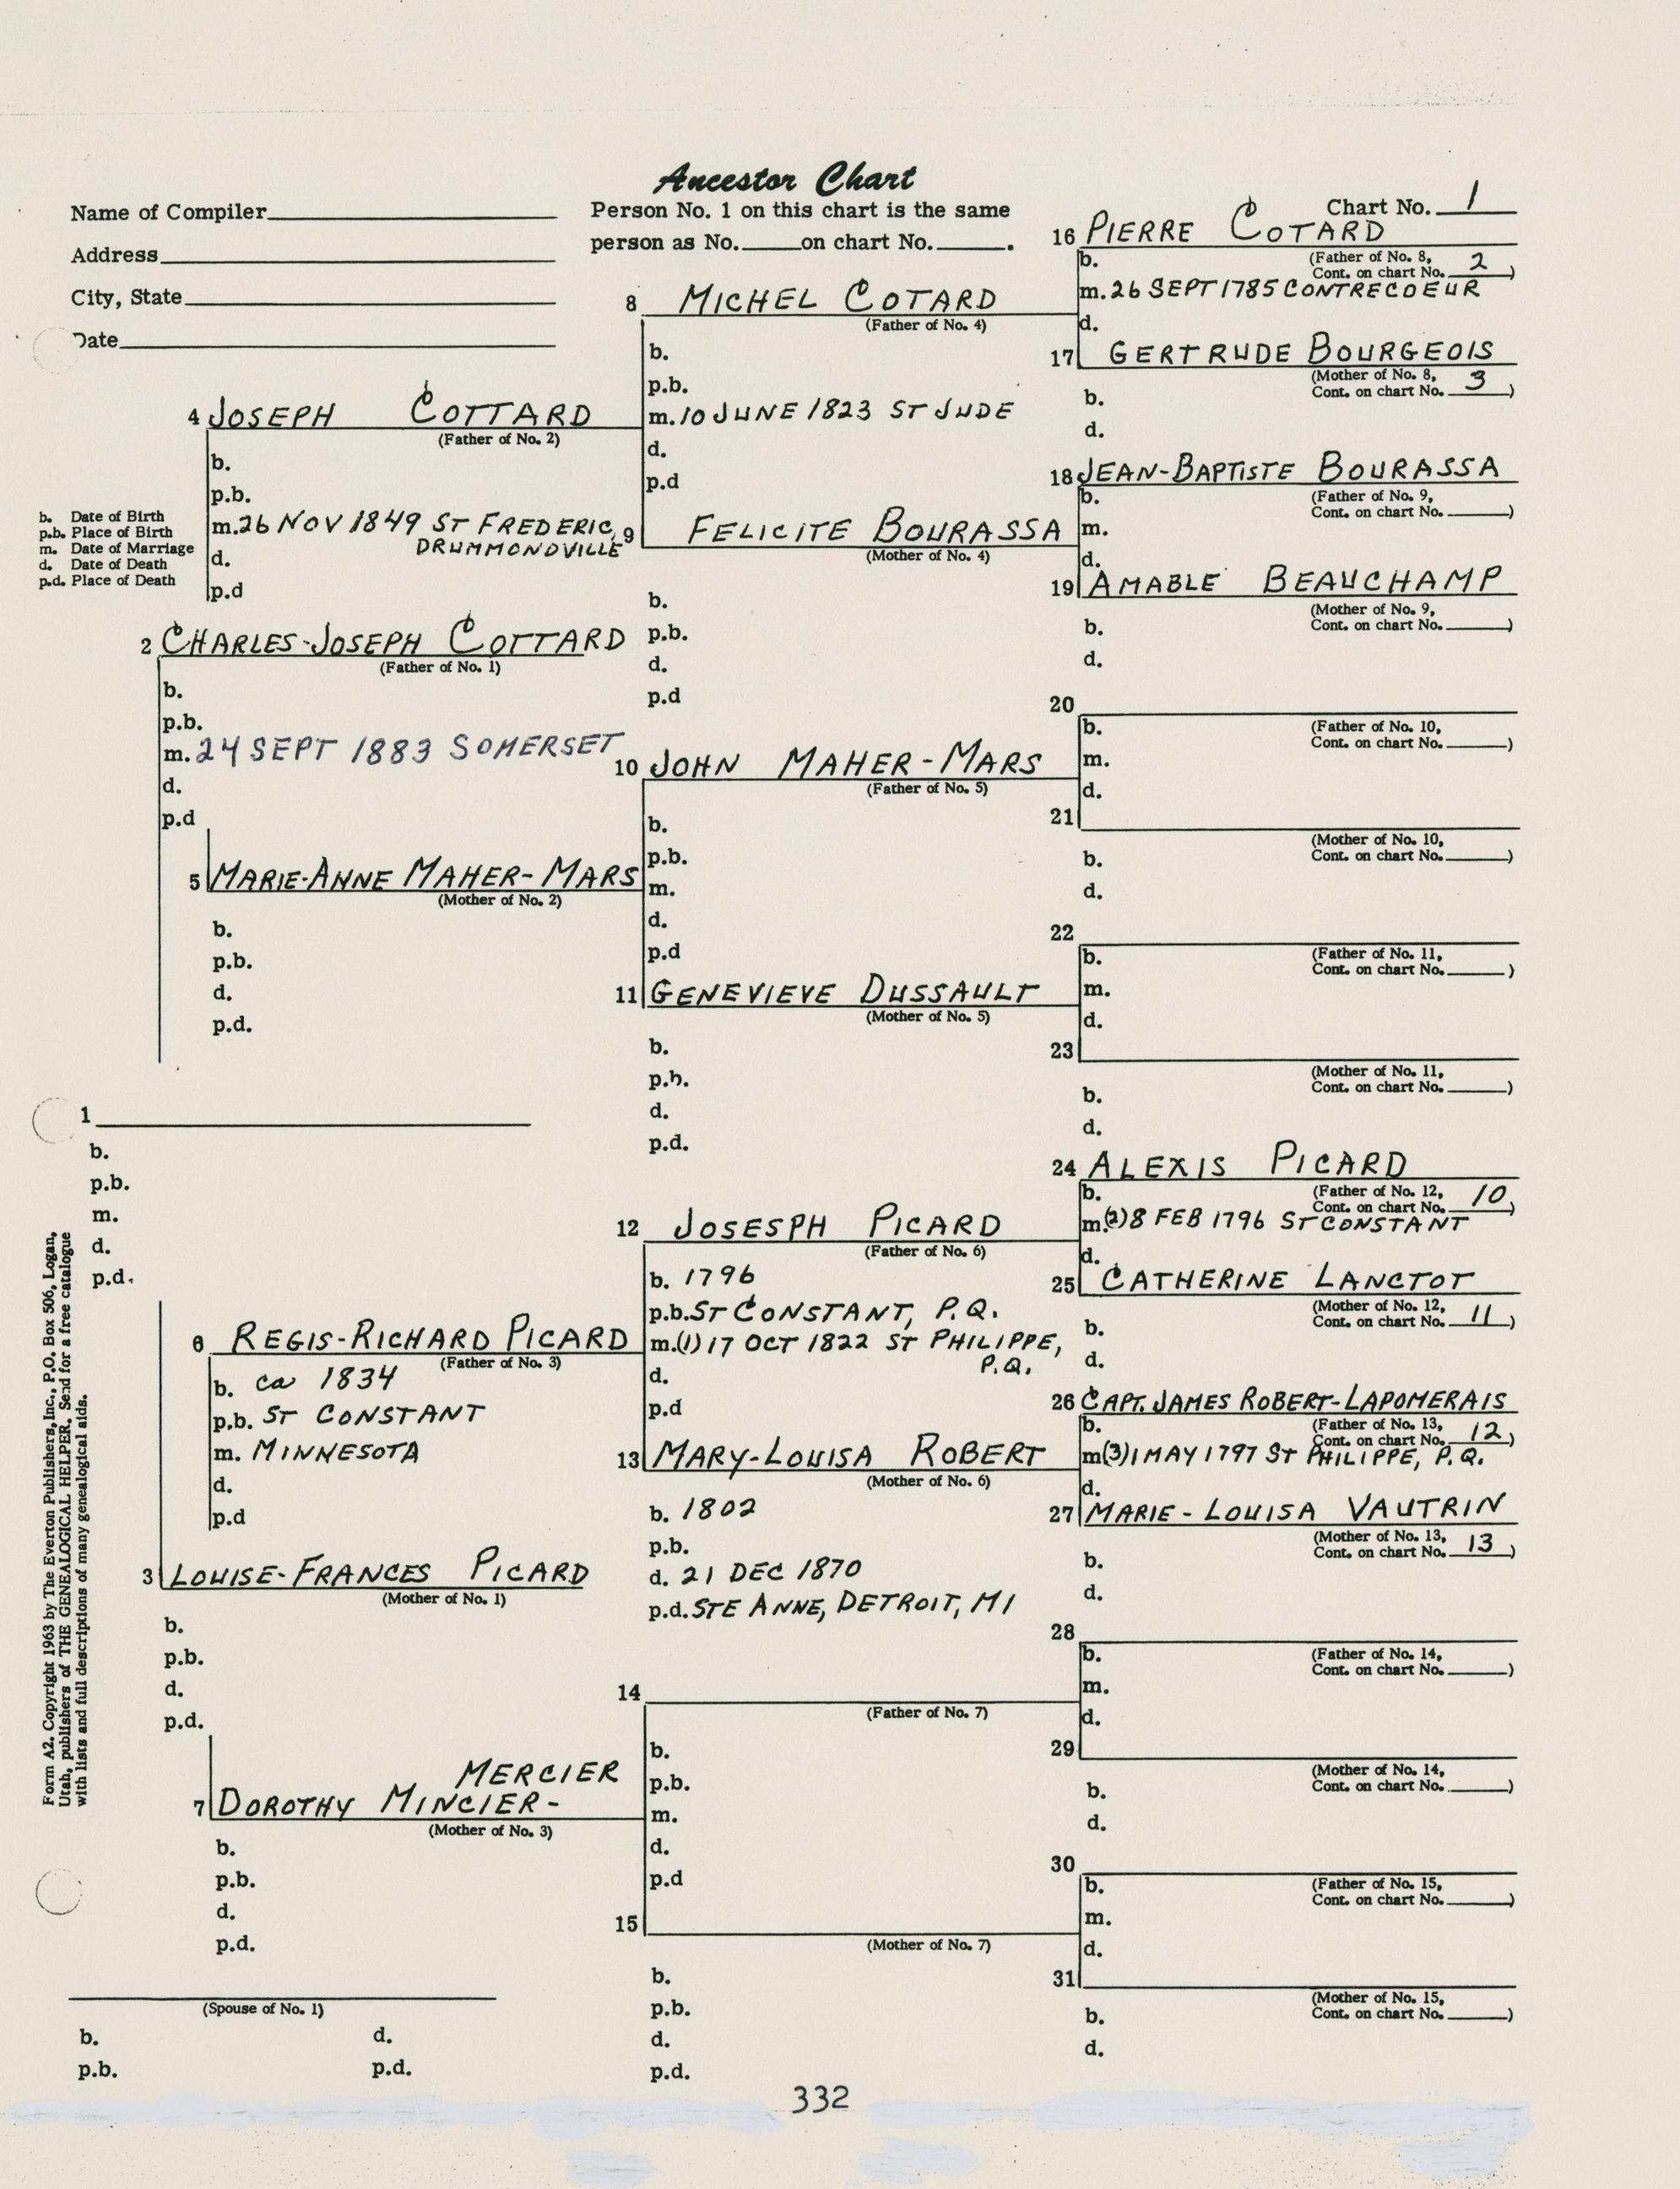 Ancestor Chart
Name of Compiler
Address
City, State
Date
Person No. 1 on this chart is the same
person as No. on chart No. .
Chart No. 1
16 PIERRE COTARD
b.
(Father of No. 8,
Cont. on chart No. 2 )
m. 26 SEPT 1785 CONTRECOEUR
d.
8 MICHEL COTARD
(Father of No. 4)
b.
p.b.
m. 10 JUNE 1823 ST JUDE
d.
p.d
17 GERTRUDE BOURGEOIS
(Mother of No. 8,
Cont. on chart No. 3 )
b.
d.
4 JOSEPH COTTARD
(Father of No. 2)
b.
p.b.
m. 26 NOV 1849 ST FREDERIC,
DRUMMONDVILLE
d.
p.d
18 JEAN-BAPTISTE BOURASSA
b.
(Father of No. 9,
Cont. on chart No. )
m.
d.
b. Date of Birth
p.b. Place of Birth
m. Date of Marriage
d. Date of Death
p.d. Place of Death
9 FELICITE BOURASSA
(Mother of No. 4)
b.
p.b.
d.
p.d
19 AMABLE BEAUCHAMP
(Mother of No. 9,
Cont. on chart No. )
b.
d.
2 CHARLES-JOSEPH COTTARD
(Father of No. 1)
b.
p.b.
m. 24 SEPT 1883 SOMERSET
d.
p.d
20
b.
(Father of No. 10,
Cont. on chart No. )
m.
d.
10 JOHN MAHER-MARS
(Father of No. 5)
b.
p.b.
m.
d.
p.d
21
(Mother of No. 10,
Cont. on chart No. )
b.
d.
5 MARIE-ANNE MAHER-MARS
(Mother of No. 2)
b.
p.b.
d.
p.d.
22
b.
(Father of No. 11,
Cont. on chart No. )
m.
d.
11 GENEVIEVE DUSSAULT
(Mother of No. 5)
b.
p.b.
d.
p.d.
23
(Mother of No. 11,
Cont. on chart No. )
b.
d.
1
b.
p.b.
m.
d.
p.d.
24 ALEXIS PICARD
b.
(Father of No. 12,
Cont. on chart No. 10 )
m. (2) 8 FEB 1796 ST CONSTANT
d.
12 JOSESPH PICARD
(Father of No. 6)
b. 1796
p.b. ST CONSTANT, P.Q.
m. (1) 17 OCT 1822 ST PHILIPPE,
P.Q.
d.
p.d
25 CATHERINE LANCTOT
(Mother of No. 12,
Cont. on chart No. 11 )
b.
d.
6 REGIS-RICHARD PICARD
(Father of No. 3)
b. ca 1834
p.b. ST CONSTANT
m. MINNESOTA
d.
p.d
26 CAPT. JAMES ROBERT-LAPOMERAIS
b.
(Father of No. 13,
Cont. on chart No. 12 )
m (3) 1 MAY 1797 ST PHILIPPE, P.Q.
d.
13 MARY-LOUISA ROBERT
(Mother of No. 6)
b. 1802
p.b.
d. 21 DEC 1870
p.d. STE ANNE, DETROIT, MI
27 MARIE-LOUISA VAUTRIN
(Mother of No. 13,
Cont. on chart No. 13 )
b.
d.
3 LOUISE-FRANCES PICARD
(Mother of No. 1)
b.
p.b.
d.
p.d.
28
b.
(Father of No. 14,
Cont. on chart No. )
m.
d.
14
(Father of No. 7)
b.
p.b.
m.
d.
p.d
29
(Mother of No. 14,
Cont. on chart No. )
b.
d.
MERCIER
7 DOROTHY MINCIER-
(Mother of No. 3)
b.
p.b.
d.
p.d.
30
b.
(Father of No. 15,
Cont. on chart No. )
m.
d.
15
(Mother of No. 7)
b.
p.b.
d.
p.d.
31
(Mother of No. 15,
Cont. on chart No. )
b.
d.
(Spouse of No. 1)
b. d.
p.b. p.d.
Form A2. Copyright 1963 by The Everton Publishers, Inc., P.O. Box 506, Logan,
Utah, publishers of THE GENEALOGICAL HELPER. Send for a free catalogue
with lists and full descriptions of many genealogical aids.
332